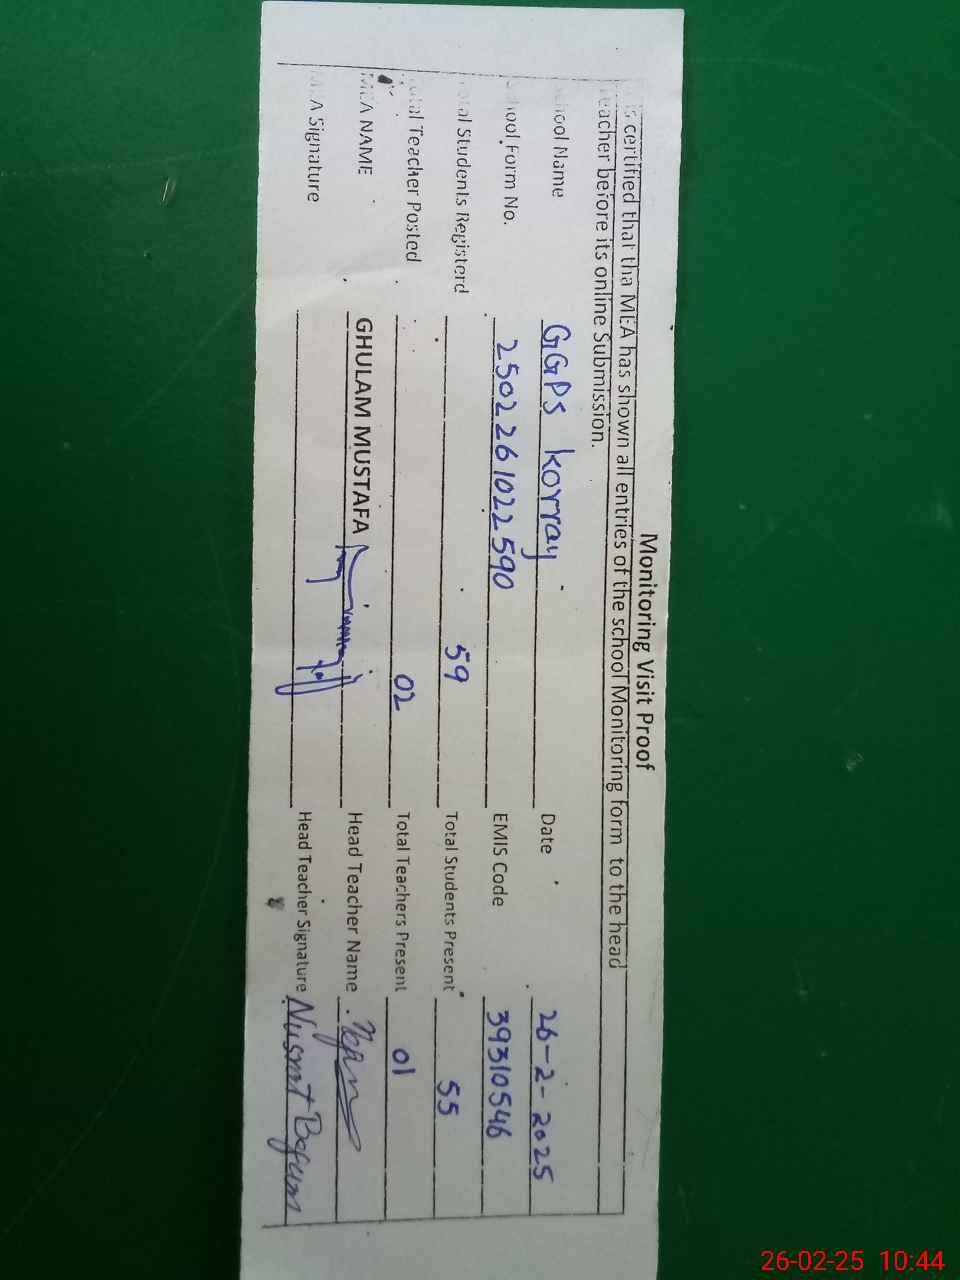 Monitoring Visit Proof
is certified that tha MEA has shown all entries of the school Monitoring form to the head
teacher before its online Submission.
School Name GGPS Korray Date 26-2-2025
School Form No. 2502261022590 EMIS Code 39310546
Total Students Registerd 59 Total Students Present 55
Total Teacher Posted 02 Total Teachers Present 01
MEA NAME GHULAM MUSTAFA Head Teacher Name
MEA Signature Head Teacher Signature Nusrat Begum
26-02-25 10:44